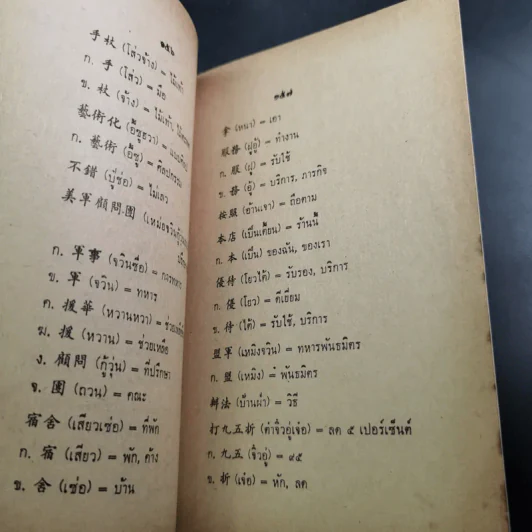 ๑๕๖
手杖 (โส่วจ้าง) = ไม้เท้า
ก. 手 (โส่ว) = มือ
ข. 杖 (จ้าง) = ไม้เท้า,
藝術化 (อี้ซูฮวา) =
ก. 藝術 (อี้ซู) =
不錯 (ปู๋ช่อ) = ไม่เลว
美軍顧問團
ก. 軍事 (จวินซื่อ) = การทหาร
ข. 軍 (จวิน) = ทหาร
ค. 援華 (หวานหวา) =
ฆ. 援 (หวาน) = ช่วยเหลือ
ง. 顧問 (กู้วุ่น) = ที่ปรึกษา
จ. 團 (ถวน) = คณะ
宿舍 (เสียวเซ่อ) = ที่พัก
ก. 宿 (เสียว) = พัก, ค้าง
ข. 舍 (เซ่อ) = บ้าน
๑๕๗
拿 (หนา) = เอา
服務 (ฝูอู้) = ทำงาน
ก. 服 (ฝู) = รับใช้
ข. 務 (อู้) = บริการ, ภารกิจ
按照 (อ้านเจา) = ถือตาม
本店 (เปิ่นเตี้ยน) = ร้านนี้
ก. 本 (เปิ่น) ของฉัน, ของเรา
優待 (โยวไต้) = รับรอง, บริการ
ก. 優 (โยว) = ดีเยี่ยม
ข. 待 (ไต้) = รับใช้, บริการ
盟軍 (เหมิงจวิน) = ทหารพันธมิตร
ก. 盟 (เหมิง) = พันธมิตร
辦法 (บ้านฝ่า) = วิธี
打九五折 (ต่าจิ่วอู่เจ๋อ) = ลด ๕ เปอร์เซ็นต์
ก. 九五 (จิ่วอู่) = ๙๕
ข. 折 (เจ๋อ) = หัก, ลด